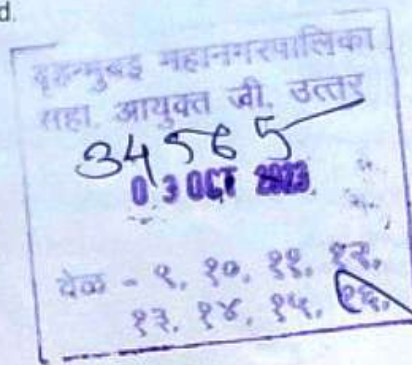 d.
बृहन्मुंबई महानगरपालिका
सहा. आयुक्त जी. उत्तर
34565
03 OCT 2023
वेळ - ९, १०, ११, १२,
१३, १४, १५, १६,